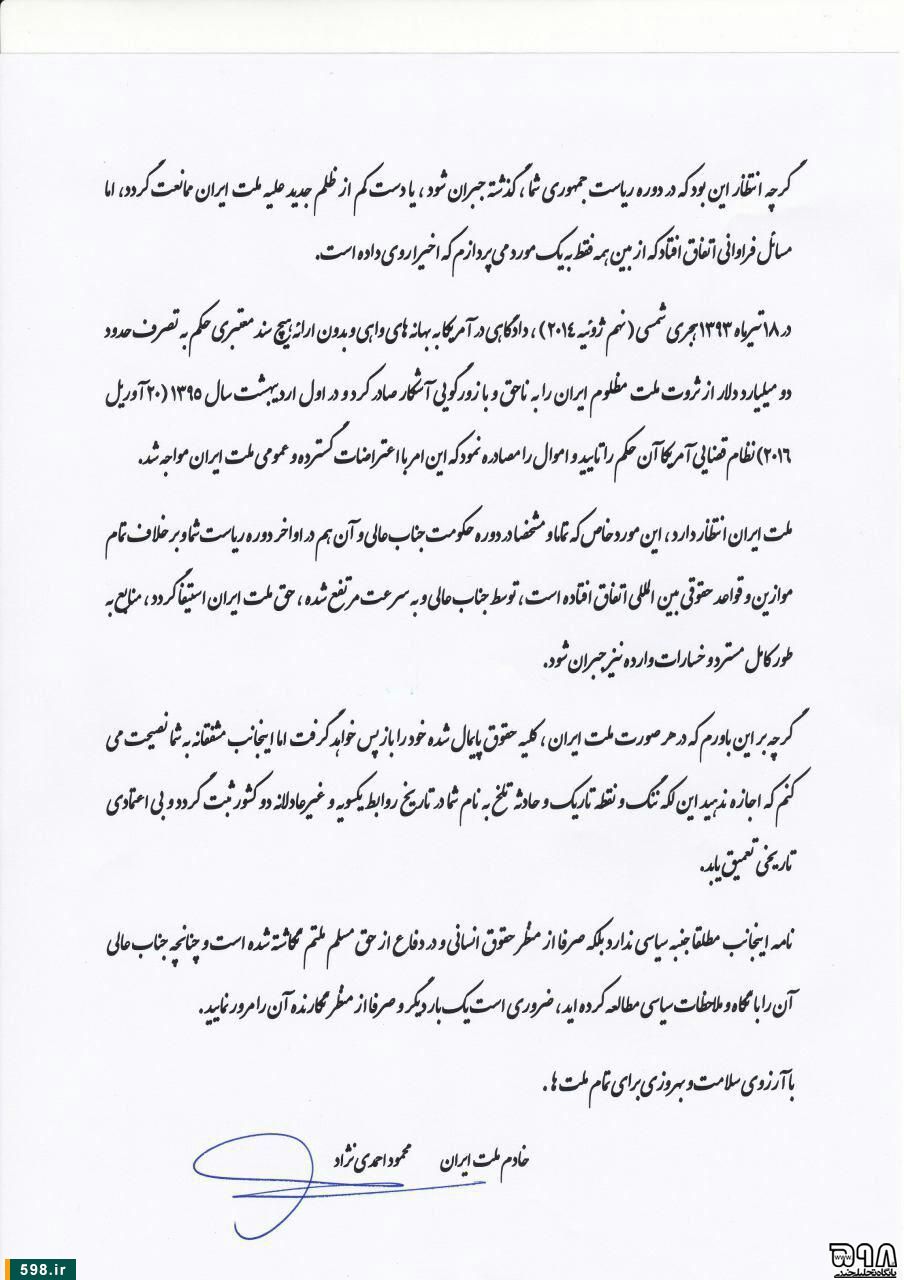 گرچه انتظار این بود که در دوره ریاست جمهوری شما، گذشته جبران شود، یا دست کم از ظلم جدید علیه ملت ایران ممانعت گردد، اما
مسائل فراوانی اتفاق افتاد که از بین همه فقط به یک مورد می پردازم که اخیرا روی داده است.
در ۱۸ تیرماه ۱۳۹۳ هجری شمسی (نهم ژوئیه ۲۰۱۴)، دادگاهی در آمریکا به بهانه های واهی و بدون ارائه هیچ سند معتبری حکم به تصرف حدود
دو میلیارد دلار از ثروت ملت مظلوم ایران را به ناحق و با زورگویی آشکار صادر کرد و در اول اردیبهشت سال ۱۳۹۵ (۲۰ آوریل
۲۰۱۶) نظام قضایی آمریکا آن حکم را تایید و اموال را مصادره نمود که این امر با اعتراضات گسترده و عمومی ملت ایران مواجه شد.
ملت ایران انتظار دارد، این مورد خاص که تماما و مشخصا در دوره حکومت جناب عالی و آن هم در اواخر دوره ریاست شما و بر خلاف تمام
موازین و قواعد حقوقی بین المللی اتفاق افتاده است، توسط جناب عالی و به سرعت مرتفع شده، حق ملت ایران استیفا گردد، منابع به
طور کامل مسترد و خسارات وارده نیز جبران شود.
گرچه بر این باورم که در هر صورت ملت ایران، کلیه حقوق پایمال شده خود را باز پس خواهد گرفت اما اینجانب مشفقانه به شما نصیحت می
کنم که اجازه ندهید این لکه ننگ و نقطه تاریک و حادثه تلخ به نام شما در تاریخ روابط یکسویه و غیرعادلانه دو کشور ثبت گردد و بی اعتمادی
تاریخی تعمیق یابد.
نامه اینجانب مطلقا جنبه سیاسی ندارد بلکه صرفا از منظر حقوق انسانی و در دفاع از حق مسلم ملتم نگاشته شده است و چنانچه جناب عالی
آن را با نگاه و ملاحظات سیاسی مطالعه کرده اید، ضروری است یک بار دیگر و صرفا از منظر نگارنده آن را مرور نمایید.
با آرزوی سلامت و بهروزی برای تمام ملت ها.
خادم ملت ایران محمود احمدی نژاد
598.ir
www.
۵۹۸
پایگاه تحلیلی خبری